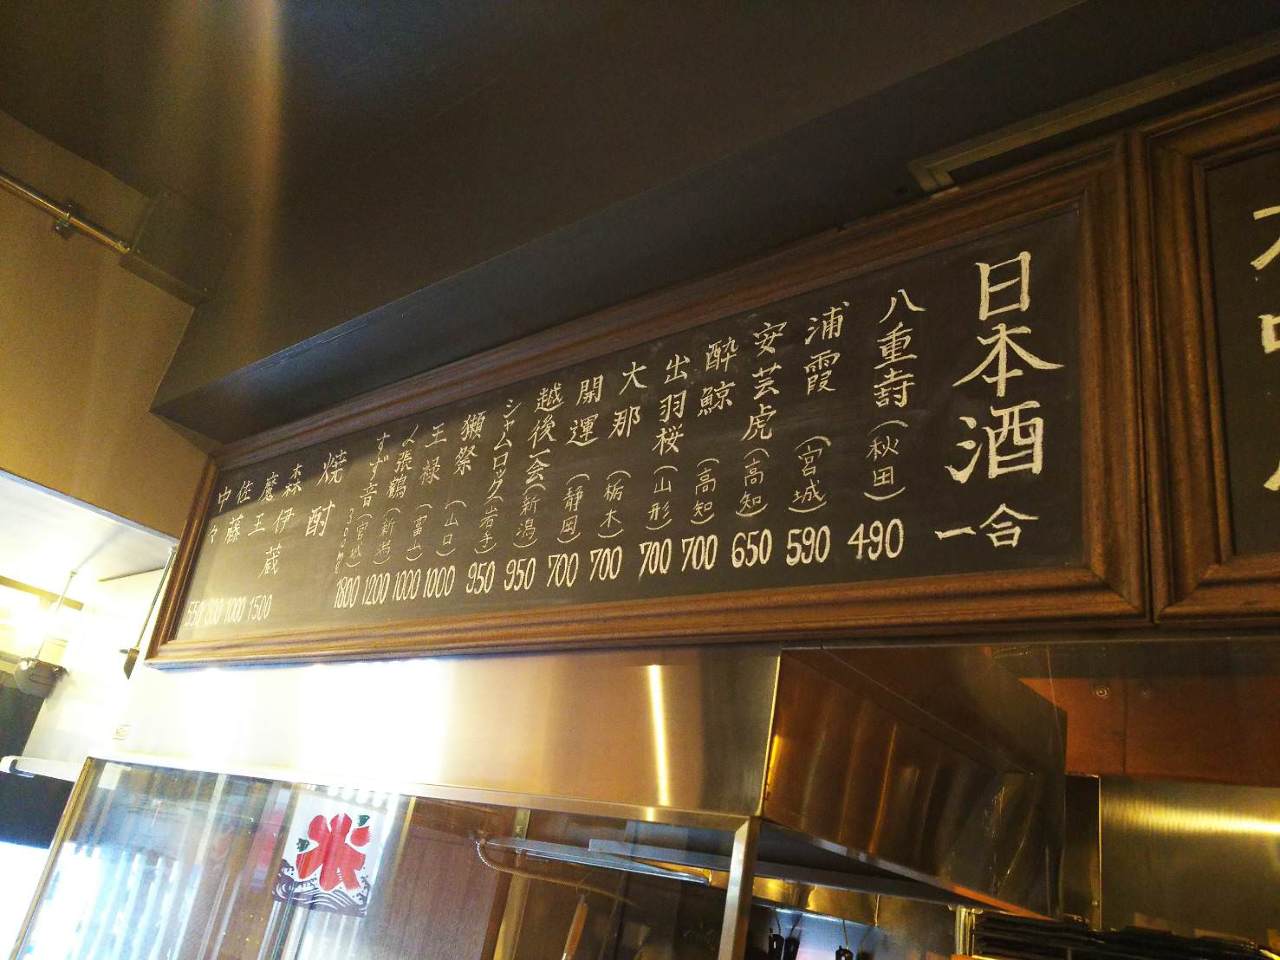 日本酒 一合
八重寿（秋田）490
浦霞（宮城）590
安芸虎（高知）650
酔鯨（高知）700
出羽桜（山形）700
大那（栃木）700
開運（静岡）700
越後一会（新潟）950
シャムロック（岩手）950
獺祭（山口）1000
王禄（富山）1000
〆張鶴（新潟）1200
すず音（宮城）1800
焼酎
森伊蔵 1500
魔王 1000
佐藤
中々 550
氷